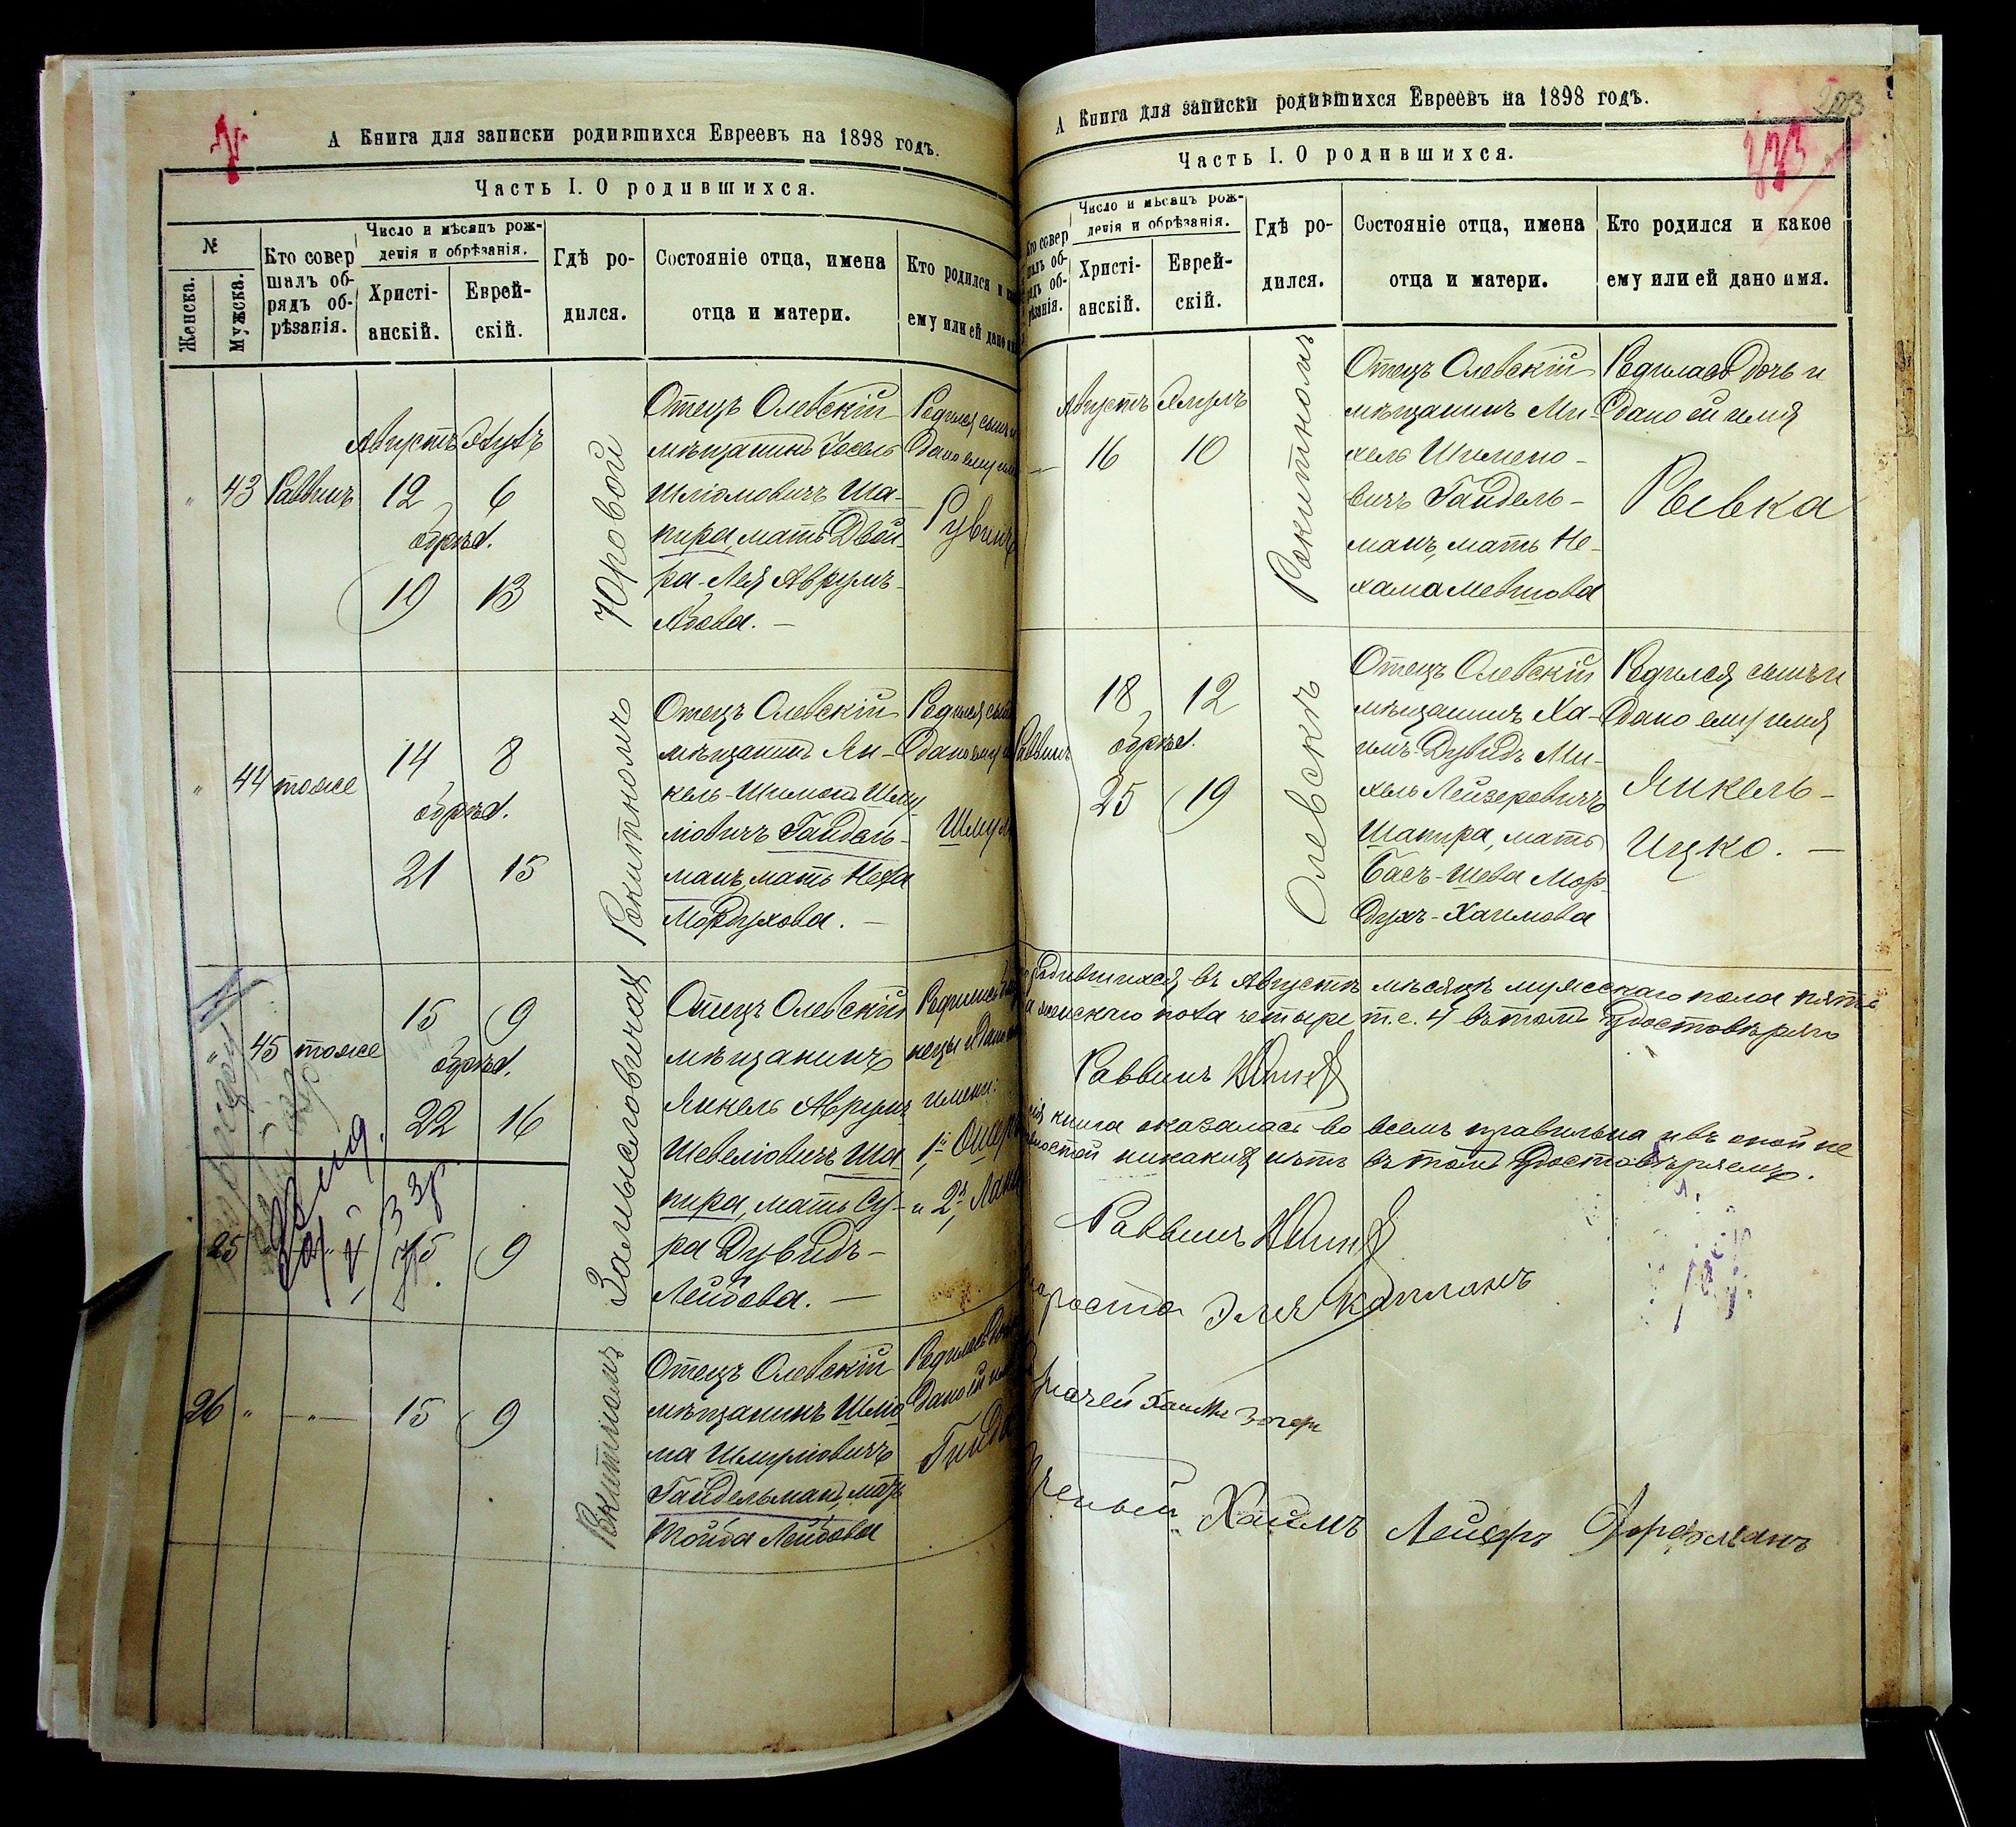 А Книга для записки родившихся Евреевъ на 1898 годъ.
Часть I. О родившихся.
№
Женска.
Мужска.
Кто совер
шалъ об-
рядъ об-
рѣзанія.
Число и мѣсяцъ рож-
денія и обрѣзанія.
Христі-
анскій.
Еврей-
скій.
Гдѣ ро-
дился.
Состояніе отца, имена
отца и матери.
Кто родился и
ему или ей дано
Августъ
43 Раввинъ 12 6
обрѣз.
19 13
Юровой
Отецъ Олевскій
мѣщанинъ Іосель
Шліомовичъ Ша-
пира, мать Двой-
ра-Лея Аврумъ-
Абова. —
Родился сынъ и
дано ему
Рувинъ
44 тоже 14 8
обрѣз.
21 15
Рокитномъ
Отецъ Олевскій
мѣщанинъ Ян-
кель-Шимонъ Шму-
ліовичъ Гандель-
манъ, мать Неха
Мордухова. —
Родился сынъ
дано ему
45 тоже 15 9
обрѣз.
22 16
25 15 9
Отецъ Олевскій
мѣщанинъ
Янкель Аврумъ
Шевеліовичъ Ша-
пира, мать Су-
ра Дувидъ-
Лейбова. —
имена:
26 " — " — 15 9
Рокитномъ
Отецъ Олевскій
мѣщанинъ Шліо
ма Шмуліовичъ
Гандельманъ, мать
Тойба Лейбова
Родилась
дано ей
А Книга для записки родившихся Евреевъ на 1898 годъ.
Часть I. О родившихся.
Кто совер
шалъ об-
рядъ об-
рѣзанія.
Число и мѣсяцъ рож-
денія и обрѣзанія.
Христі-
анскій.
Еврей-
скій.
Гдѣ ро-
дился.
Состояніе отца, имена
отца и матери.
Кто родился и какое
ему или ей дано имя.
Августъ
— 16 10
Рокитномъ
Отецъ Олевскій
мѣщанинъ Ми-
хель Шимено-
вичъ Гандель-
манъ, мать Не-
хама Мевшова
Родилась дочь и
дано ей имя
Ривка
Раввинъ 18 12
обрѣз.
25 19
Олевскъ
Отецъ Олевскій
мѣщанинъ Ха-
имъ-Дувидъ Ми-
хель Лейзеровичъ
Шапира, мать
Бася-Шева Мор-
духъ-Хаимова
Родился сынъ и
дано ему имя
Янкель-
Ицко. —
родившихся въ Августѣ мѣсяцѣ мужескаго пола пять
а женскаго пола четыре т.е. 4 въ томъ удостовѣряю
Раввинъ
книга оказалась во всемъ правильна и въ оной не
никакихъ нѣтъ въ томъ удостовѣряемъ.
Раввинъ
Староста Эля Капланъ
Казначей Хаимъ
Ученый Хаимъ Лейзеръ